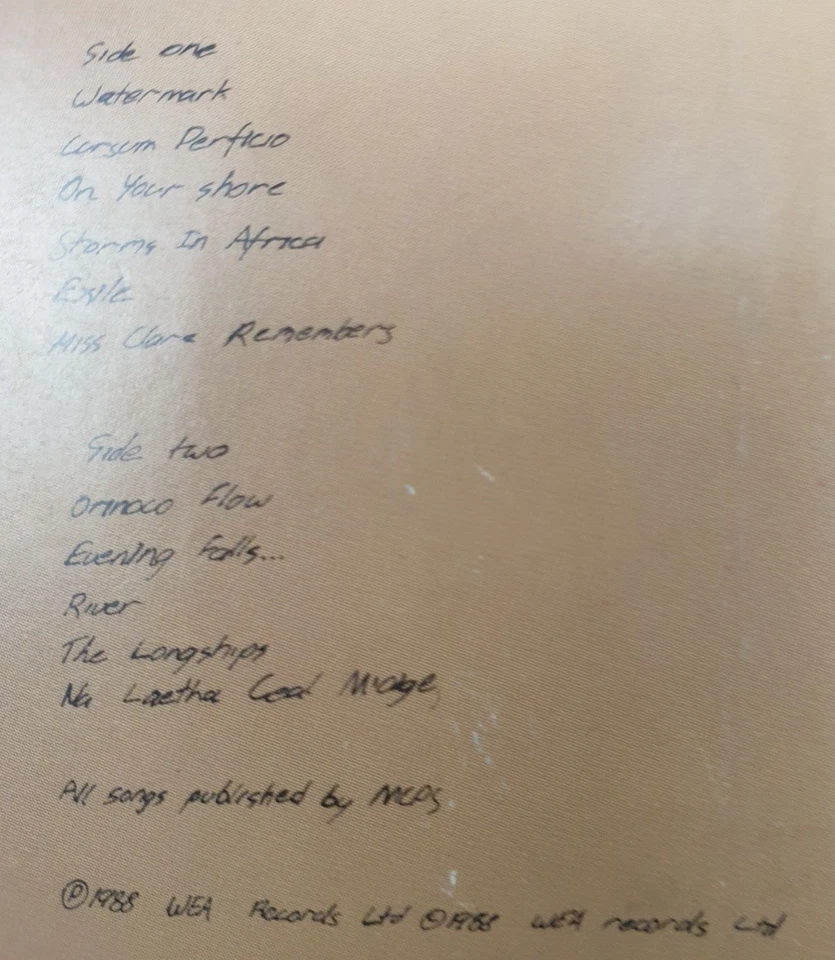 Side one
Watermark
Cursum Perficio
On Your shore
Storms In Africa
Exile
Miss Clare Remembers
Side two
Orinoco Flow
Evening Falls...
River
The Longships
Na Laetha Geal M'oige
All songs published by MCPS
℗1988 WEA Records Ltd ©1988 WEA records Ltd